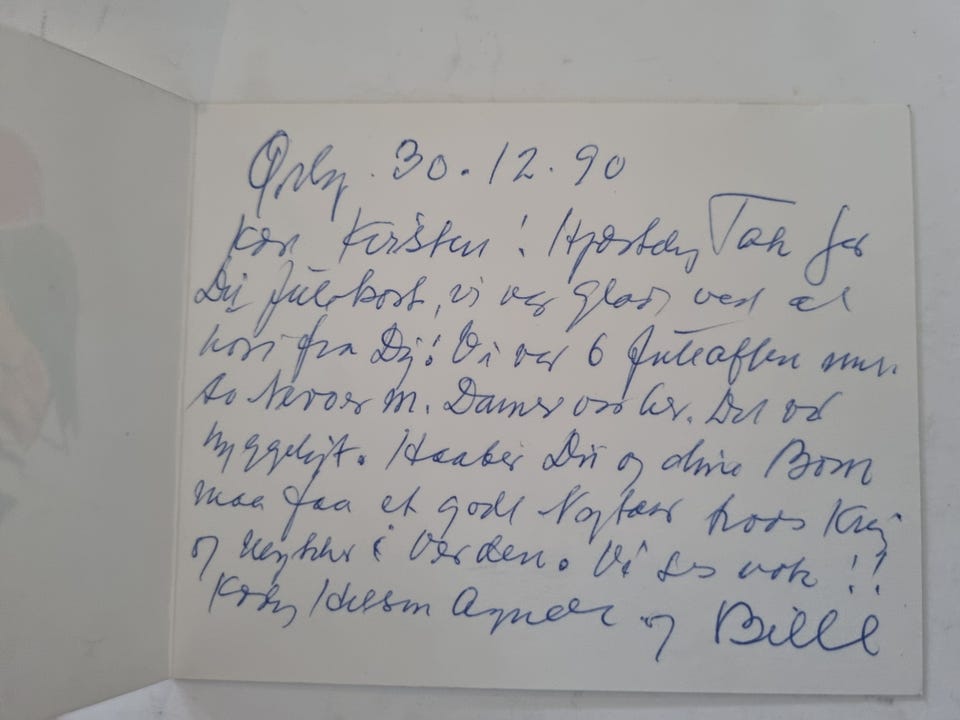 Ørby. 30.12.90
Kære Kirsten! Hjærtelig Tak for
Dit Julekort, vi var glade ved at
høre fra Dig! Vi var 6 Juleaften min
to Nevøer m. Damer var her. Det var
hyggeligt. Haaber Du og dine Børn
maa faa et godt Nytaar trods Krig
og i Verden. Vi ses nok!!
Kærlig Hilsen Agnete og Bille